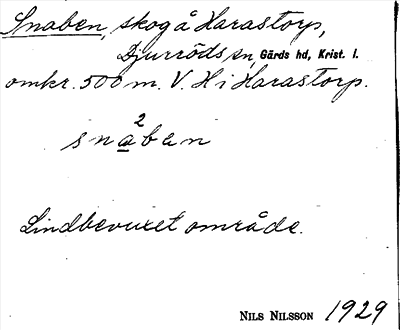 Snaben, skog å Harastorp,
Djurröds sn, Gärds hd, Krist. l.
omkr. 500 m. V. H i Harastorp.
2
snaben
Lindbevuxet område.
NILS NILSSON 1929